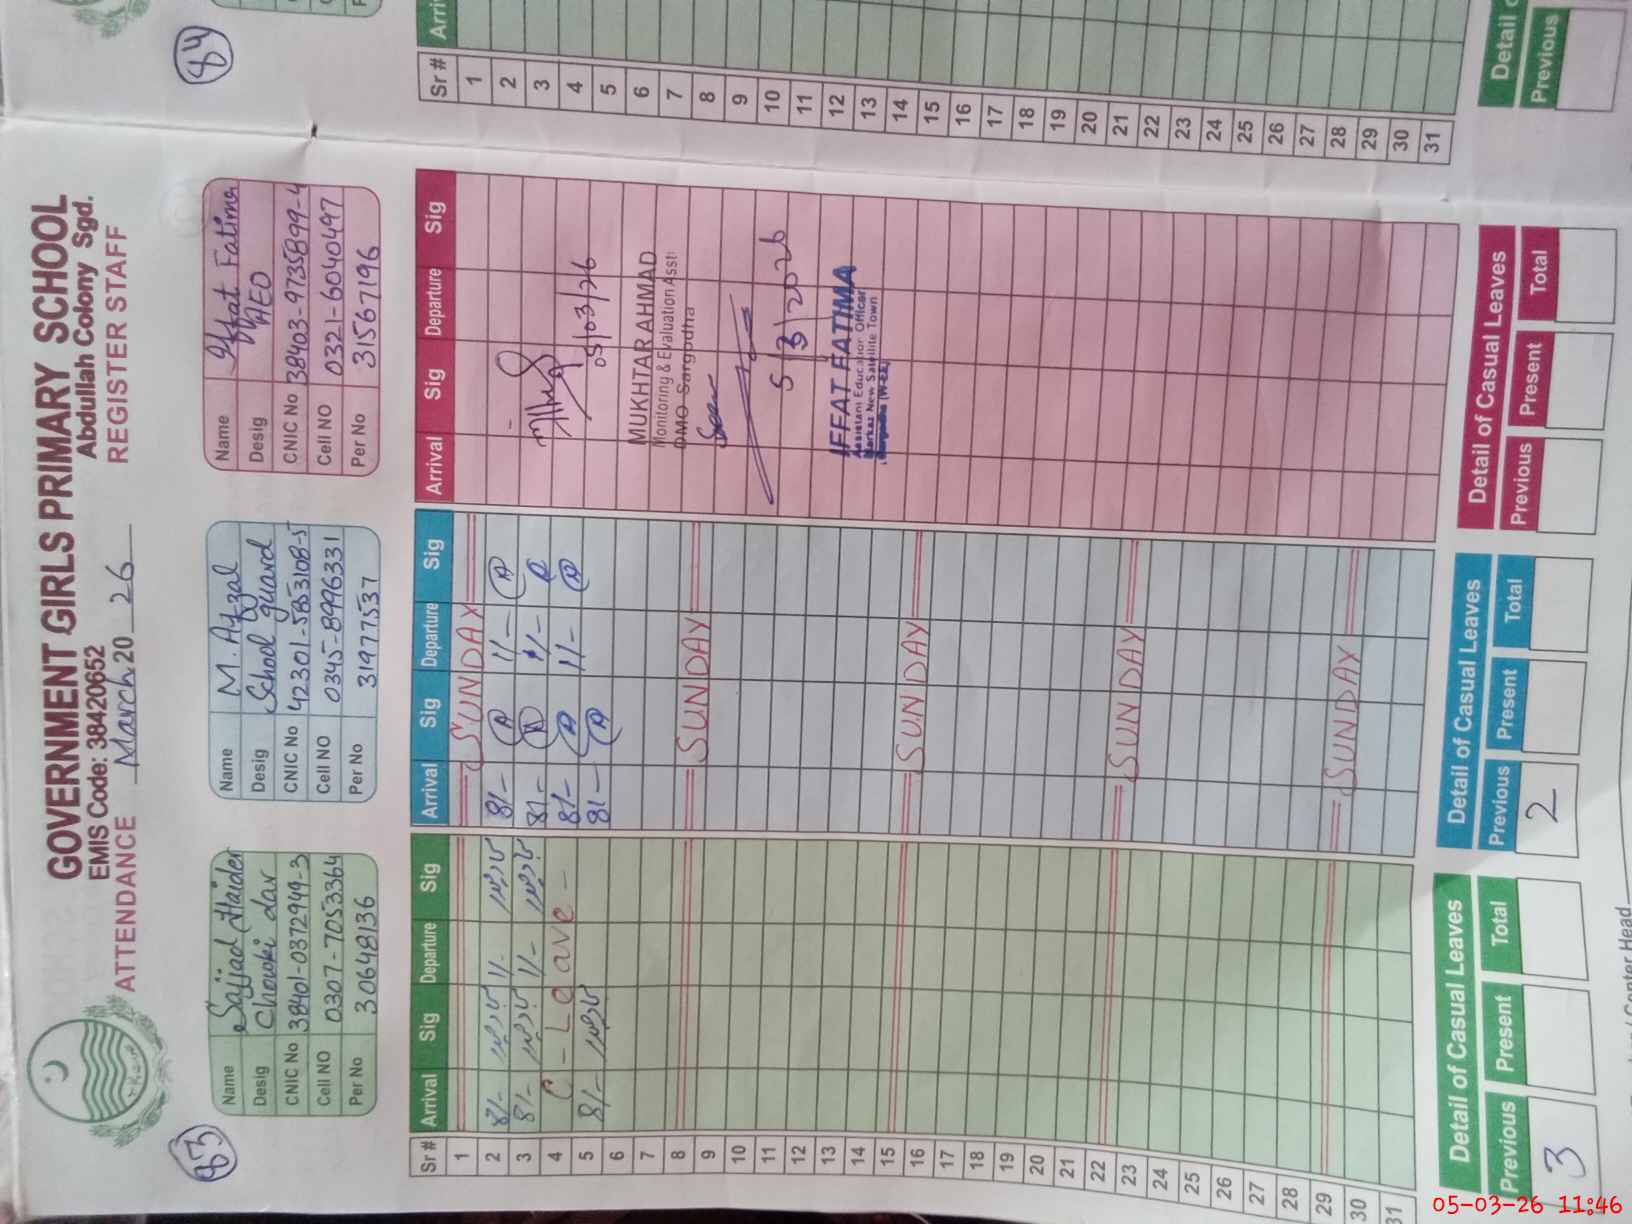 GOVERNMENT GIRLS PRIMARY SCHOOL
EMIS Code: 38420652
Abdullah Colony Sgd.
ATTENDANCE March 20 26
REGISTER STAFF
83
84
Name Sajjad Haider
Desig Chowki dar
CNIC No 38401-0372949-3
Cell NO 0307-7053364
Per No 30648136
Name M. Afzal
Desig School guard
CNIC No 42301-5853108-5
Cell NO 0345-8996331
Per No 31977537
Name Iffat Fatima
Desig AEO
CNIC No 38403-9735899-4
Cell NO 0321-6040497
Per No 31567196
Sr # Arrival Sig Departure Sig Arrival Sig Departure Sig Arrival Sig Departure Sig Sr #
1 SUNDAY 1
2 8/- 1/- 8/- 1/- 2
3 8/- 1/- 8/- 1/- 3
4 C - Leave - 8/- 1/- 4
5 8/- 8/- 05/03/26 5
6 MUKHTAR AHMAD 6
7 Monitoring & Evaluation Asstt 7
DMO Sargodha
8 SUNDAY Seen 8
9 9
10 5/3/2026 10
11 11
12 IFFAT FATIMA 12
Assistant Education Officer
13 Markaz New Satellite Town 13
14 14
15 SUNDAY 15
16 16
17 17
18 18
19 19
20 20
21 21
22 SUNDAY 22
23 23
24 24
25 25
26 26
27 27
28 28
29 SUNDAY 29
30 30
31 31
Detail of Casual Leaves
Previous Present Total
3
Detail of Casual Leaves
Previous Present Total
2
Detail of Casual Leaves
Previous Present Total
Previous
05-03-26 11:46